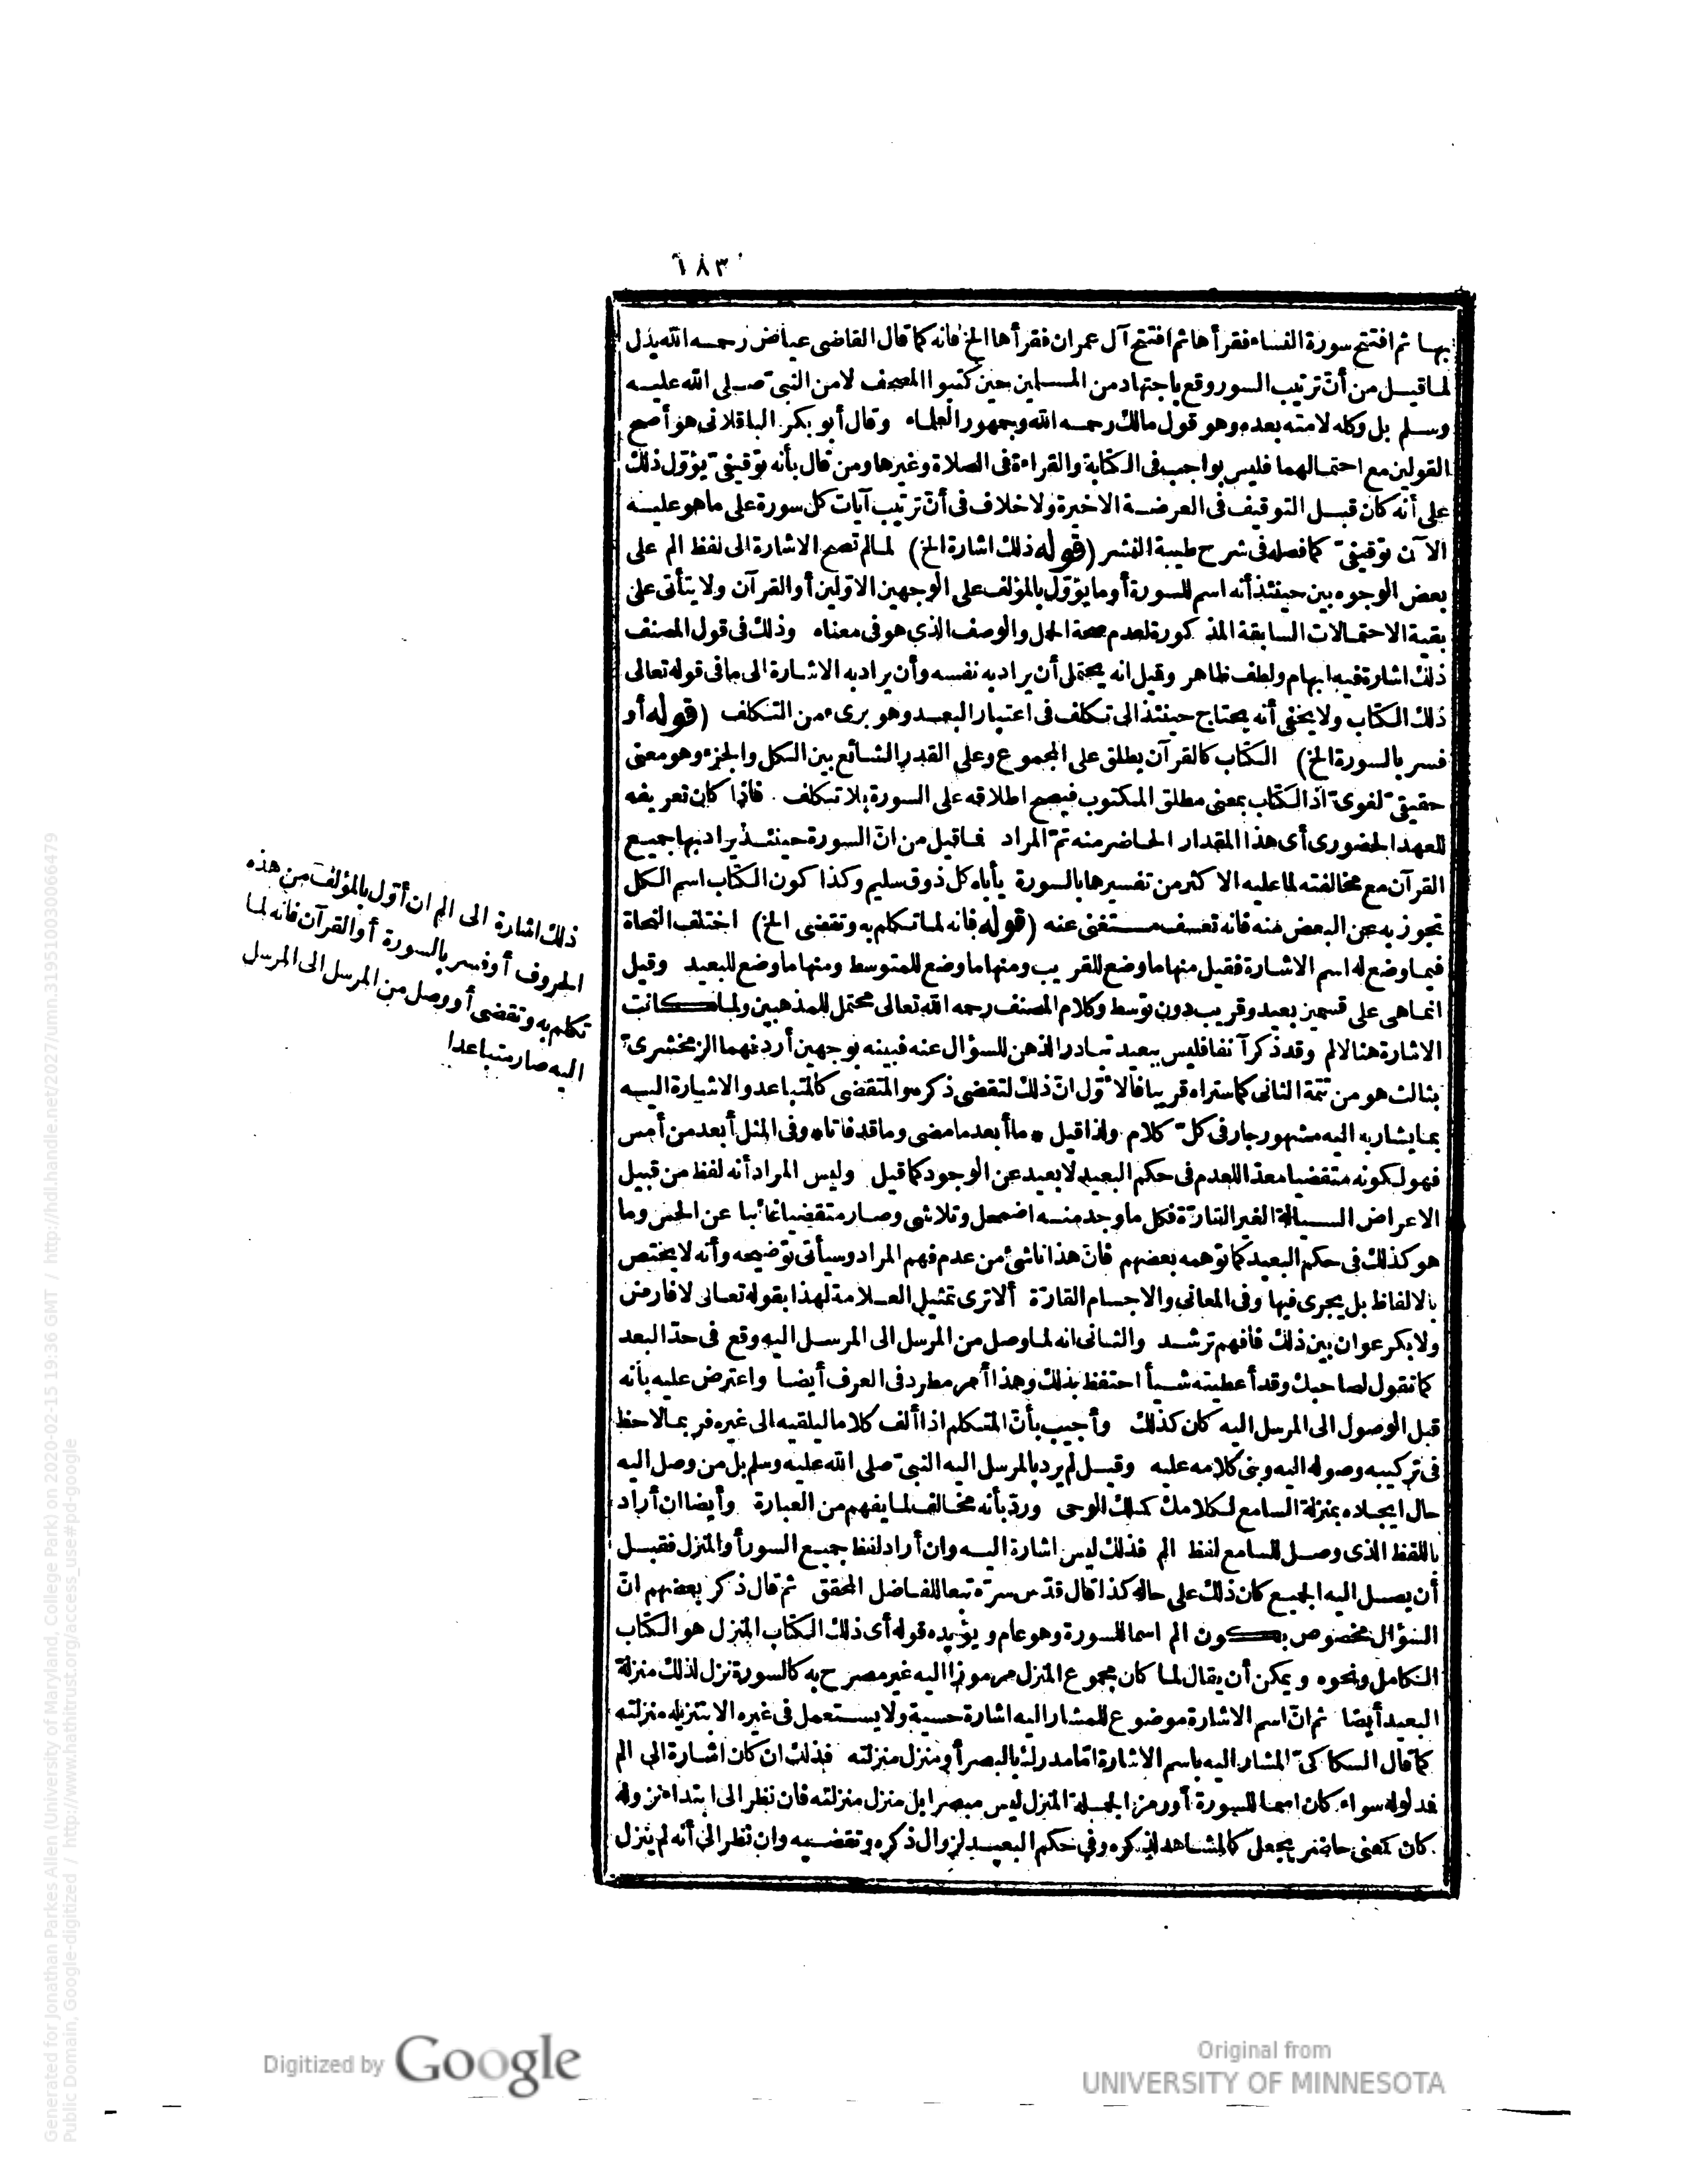 ١٨٣
بها ثم افتتح سورة النساء فقرأها ثم افتتح آل عمران فقرأها الخ فانه كما قال القاضى عياض رحمه الله يدل
لما قيل من أنّ ترتيب السور وقع باجتهاد من المسلمين حين كتبوا المصحف لا من النبىّ صلى الله عليه
وسلم بل وكله لامته بعده وهو قول مالك رحمه الله وجمهور العلماء وقال أبو بكر الباقلانى هو أصح
القولين مع احتمالهما فليس بواجب فى الكتابة والقراءة فى الصلاة وغيرها ومن قال بأنه توقيفىّ يؤوّل ذلك
على أنه كان قبل التوقيف فى العرضة الاخيرة ولا خلاف فى أنّ ترتيب آيات كل سورة على ما هو عليه
الآن توقيفىّ كما فصله فى شرح طيبة النشر (قوله ذلك اشارة الخ) لما لم تصح الاشارة الى لفظ الم على
بعض الوجوه بين حينئذ أنه اسم للسورة أو ما يؤوّل بالمؤلف على الوجهين الاوّلين أو القرآن ولا يتأتى على
بقية الاحتمالات السابقة المذكورة لعدم صحة الحمل والوصف الذى هو فى معناه وذلك فى قول المصنف
ذلك اشارة فيه ايهام ولطف ظاهر وقيل انه يحتمل أن يراد به نفسه وأن يراد به الاشارة الى ما فى قوله تعالى
ذلك الكتاب ولا يخفى أنه يحتاج حينئذ الى تكلف فى اعتبار البعد وهو برىء من التكلف (قوله أو
فسر بالسورة الخ) الكتاب كالقرآن يطلق على المجموع وعلى القدر الشائع بين الكل والجزء وهو معنى
حقيقىّ لغوىّ اذ الكتاب بمعنى مطلق المكتوب فيصح اطلاقه على السورة بلا تكلف فاذا كان تعريفه
للعهد الحضورى أى هذا المقدار الحاضر منه تمّ المراد فما قيل من انّ السورة حينئذ يراد بها جميع
القرآن مع مخالفته لما عليه الاكثر من تفسيرها بالسورة يأباه كل ذوق سليم وكذا كون الكتاب اسم الكل
تجوز به عن البعض منه فانه تعسف مستغنى عنه (قوله فانه لما تكلم به وتقضى الخ) اختلف النحاة
فيما وضع له اسم الاشارة فقيل منها ما وضع للقريب ومنها ما وضع للمتوسط ومنها ما وضع للبعيد وقيل
انما هى على قسمين بعيد وقريب دون توسط وكلام المصنف رحمه الله تعالى محتمل للمذهبين ولما كانت
الاشارة هنا لالم وقد ذكر آنفا فليس ببعيد تبادر الذهن للسؤال عنه فبينه بوجهين أردفهما الزمخشرىّ
بثالث هو من تتمة الثانى كما ستراه قريبا فالاوّل انّ ذلك لتقضى ذكره والمتقضى كالمتباعد والاشارة اليه
بما يشار به اليه مشهور جار فى كلّ كلام ولذا قيل * ما أبعد ما مضى وما قد فاتا * وفى المثل أبعد من أمس
فهو لكونه متقضيا معدّا للعدم فى حكم البعيد لا بعيد عن الوجود كما قيل وليس المراد أنه لفظ من قبيل
الاعراض السيالة الغير القارّة فكل ما وجد منه اضمحل وتلاشى وصار متقضيا غائبا عن الحس وما
هو كذلك فى حكم البعيد كما توهمه بعضهم فانّ هذا ناشئ من عدم فهم المراد وسيأتى توضيحه وأنه لا يختص
بالالفاظ بل يجرى فيها وفى المعانى والاجسام القارّة ألا ترى تمثيل العلامة لهذا بقوله تعالى لا فارض
ولا بكر عوان بين ذلك فافهم ترشد والثانى انه لما وصل من المرسل الى المرسل اليه وقع فى حدّ البعد
كما تقول لصاحبك وقد أعطيته شيأ احتفظ بذلك وهذا أمر مطرد فى العرف أيضا واعترض عليه بأنه
قبل الوصول الى المرسل اليه كان كذلك وأجيب بأنّ المتكلم اذا ألف كلاما ليلقيه الى غيره فربما لاحظ
فى تركيبه وصوله اليه وبنى كلامه عليه وقيل لم يرد بالمرسل اليه النبىّ صلى الله عليه وسلم بل من وصل اليه
حال ايجاده بمنزلة السامع لكلامك كملك الوحى وردّ بأنه مخالف لما يفهم من العبارة وأيضا ان أراد
باللفظ الذى وصل للسامع لفظ الم فذلك ليس اشارة اليه وان أراد لفظ جميع السور أو المنزل فقبل
أن يصل اليه الجميع كان ذلك على حاله كذا قال قدّس سرّه تبعا للفاضل المحقق ثم قال ذكر بعضهم انّ
السؤال مخصوص بكون الم اسما للسورة وهو عام ويؤيده قوله أى ذلك الكتاب المنزل هو الكتاب
الكامل ونحوه ويمكن أن يقال لما كان مجموع المنزل مرموزا اليه غير مصرح به كالسورة نزل لذلك منزلة
البعيد أيضا ثم انّ اسم الاشارة موضوع للمشار اليه اشارة حسية ولا يستعمل فى غيره الا بتنزيله منزلته
كما قال السكاكىّ المشار اليه باسم الاشارة امّا مدرك بالبصر أو منزل منزلته فذلك ان كان اشارة الى الم
فمدلوله سواء كان اسما للسورة أو رمزا لجملة المنزل ليس مبصرا بل منزل منزلته فان نظر الى ابتداء نزوله
كان كمعنى حاضر يجعل كالمشاهد لذكره وفى حكم البعيد لزوال ذكره وتقضيه وان نظر الى أنه لم ينزل
ذلك اشارة الى الم ان أوّل بالمؤلف من هذه
الحروف أو فسر بالسورة أو القرآن فانه لما
تكلم به وتقضى أو وصل من المرسل الى المرسل
اليه صار متباعدا
Generated for Jonathan Parkes Allen (University of Maryland, College Park) on 2020-02-15 19:36 GMT / http://hdl.handle.net/2027/umn.31951003006647
Public Domain, Google-digitized / http://www.hathitrust.org/access_use#pd-google
Digitized by Google
Original from
UNIVERSITY OF MINNESOTA